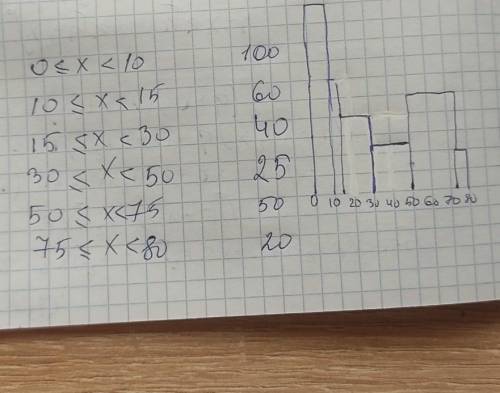 0 ≤ x < 10 100
10 ≤ x < 15 60
15 ≤ x < 30 40
30 ≤ x < 50 25
50 ≤ x < 75 50
75 ≤ x < 80 20
0 10 20 30 40 50 60 70 80